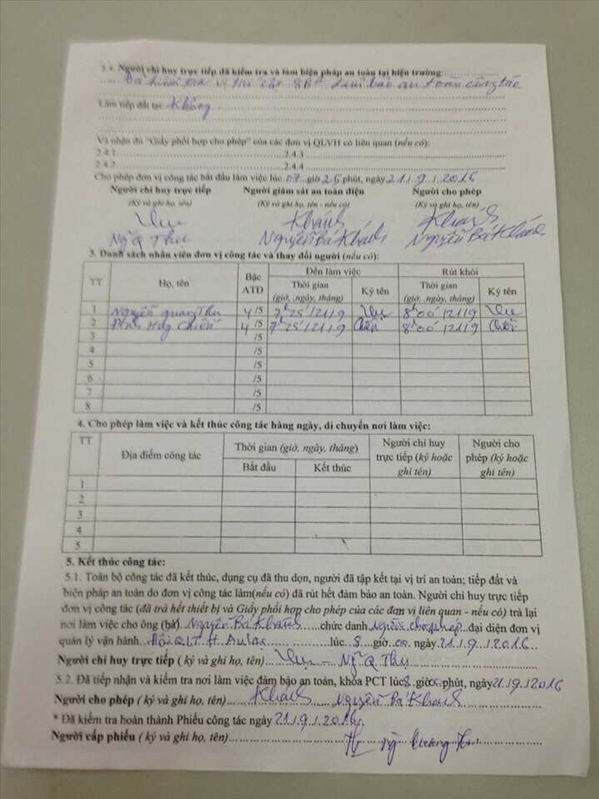 3.4. Người chỉ huy trực tiếp đã kiểm tra và làm biện pháp an toàn tại hiện trường:
Đã kiểm tra vị trí đảm bảo an toàn công tác
Làm tiếp đất tại: Không
Và nhận đủ "Giấy phối hợp cho phép" của các đơn vị QLVH có liên quan (nếu có):
2.4.1 2.4.3
2.4.2 2.4.4
Cho phép đơn vị công tác bắt đầu làm việc lúc 07 giờ 25 phút, ngày 21/9/2016
Người chỉ huy trực tiếp Người giám sát an toàn điện Người cho phép
(Ký và ghi họ, tên) (Ký và ghi họ, tên - nếu có) (Ký và ghi họ, tên)
Thu Khánh Khánh
Ng Q Thu Nguyễn Bá Khánh Nguyễn Bá Khánh
3. Danh sách nhân viên đơn vị công tác và thay đổi người (nếu có):
TT Họ, tên Bậc ATĐ Đến làm việc Rút khỏi
Thời gian (giờ, ngày, tháng) Ký tên Thời gian (giờ, ngày, tháng) Ký tên
1 Nguyễn Quang Thu 4/5 7h25' 21/9 Thu 8h00' 21/9 Thu
2 Chiến 4/5 7h25' 21/9 Chiến 8h00' 21/9 Chiến
3 /5
4 /5
5 /5
6 /5
7 /5
8 /5
4. Cho phép làm việc và kết thúc công tác hàng ngày, di chuyển nơi làm việc:
TT Địa điểm công tác Thời gian (giờ, ngày, tháng) Người chỉ huy trực tiếp (ký hoặc ghi tên) Người cho phép (ký hoặc ghi tên)
Bắt đầu Kết thúc
1
2
3
4
5
5. Kết thúc công tác:
5.1. Toàn bộ công tác đã kết thúc, dụng cụ đã thu dọn, người đã tập kết tại vị trí an toàn; tiếp đất và
biện pháp an toàn do đơn vị công tác làm(nếu có) đã rút hết đảm bảo an toàn. Người chỉ huy trực tiếp
đơn vị công tác (đã trả hết thiết bị và Giấy phối hợp cho phép của các đơn vị liên quan - nếu có) trả lại
nơi làm việc cho ông (bà) Nguyễn Bá Khánh chức danh Người cho phép đại diện đơn vị
quản lý vận hành Đội QLTH lúc 8 giờ 00 ngày 21/9/2016
Người chỉ huy trực tiếp ( ký và ghi họ, tên) Thu - Ng Q Thu
5.2. Đã tiếp nhận và kiểm tra nơi làm việc đảm bảo an toàn, khóa PCT lúc 8 giờ 00 phút, ngày 21/9/2016
Người cho phép ( ký và ghi họ, tên) Khánh Nguyễn Bá Khánh
* Đã kiểm tra hoàn thành Phiếu công tác ngày 21/9/2016
Người cấp phiếu ( ký và ghi họ, tên)